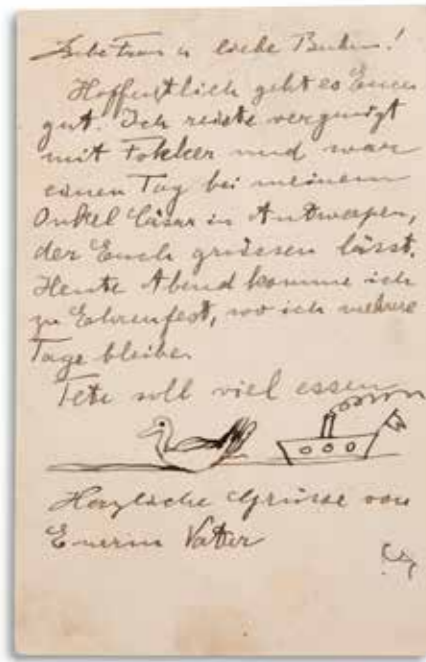 Liebe Frau u liebe Buben!
Hoffentlich geht es Euch
gut. Ich reiste vergnügt
mit Fokker und war
einen Tag bei meinem
Onkel Cäsar in Antwerpen,
der Euch grüssen lässt.
Heute Abend komme ich
zu Ehrenfest, wo ich mehrere
Tage bleibe.
Tete soll viel essen
Herzliche Grüsse von
Euerm Vatter